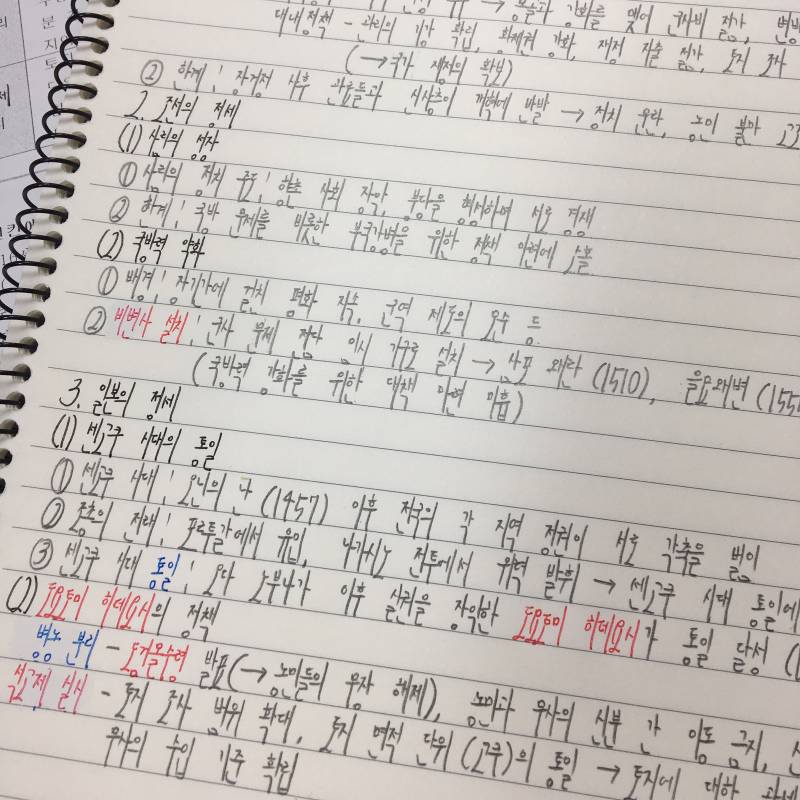 → 몽골과 강화를 맺어 군사비 절감, 변방
대내정책 - 관리의 기강 확립, 황제권 강화, 재정 지출 절감, 토지 조사
(→국가 재정의 확보)
② 한계 : 장거정 사후 관료들과 신상층이 개혁에 반발 → 정치 혼란, 농민 불만 고조
2. 조선의 정세
(1) 사림의 성장
① 사림의 정치 주도 : 향촌 사회 장악, 붕당을 형성하여 서로 경쟁
② 한계 : 국방 문제를 비롯한 부국강병을 위한 정책 마련에 소홀
(2) 국방력 약화
① 배경 : 장기간에 걸친 평화 지속, 군역 제도의 문란 등
② 비변사 설치 : 군사 문제 전담 임시 기구로 설치 → 삼포 왜란 (1510), 을묘왜변 (155
(국방력 강화를 위한 대책 마련 미흡)
3. 일본의 정세
(1) 센고쿠 시대의 통일
① 센고쿠 시대 : 오닌의 난 (1457) 이후 전국의 각 지역 정권이 서로 각축을 벌임
② 조총의 전래 : 포르투갈에서 유입, 나가시노 전투에서 위력 발휘 → 센고쿠 시대 통일에
③ 센고쿠 시대 통일 : 오다 노부나가 이후 실권을 장악한 도요토미 히데요시가 통일 달성 (1
(2) 도요토미 히데요시의 정책
병농 분리 - 도검몰수령 발표(→농민들의 무장 해제), 농민과 무사의 신분 간 이동 금지, 신
석고제 실시 - 토지 조사 범위 확대, 토지 면적 단위 (고쿠)의 통일 → 토지에 대한 과세
무사의 수입 기준 확립